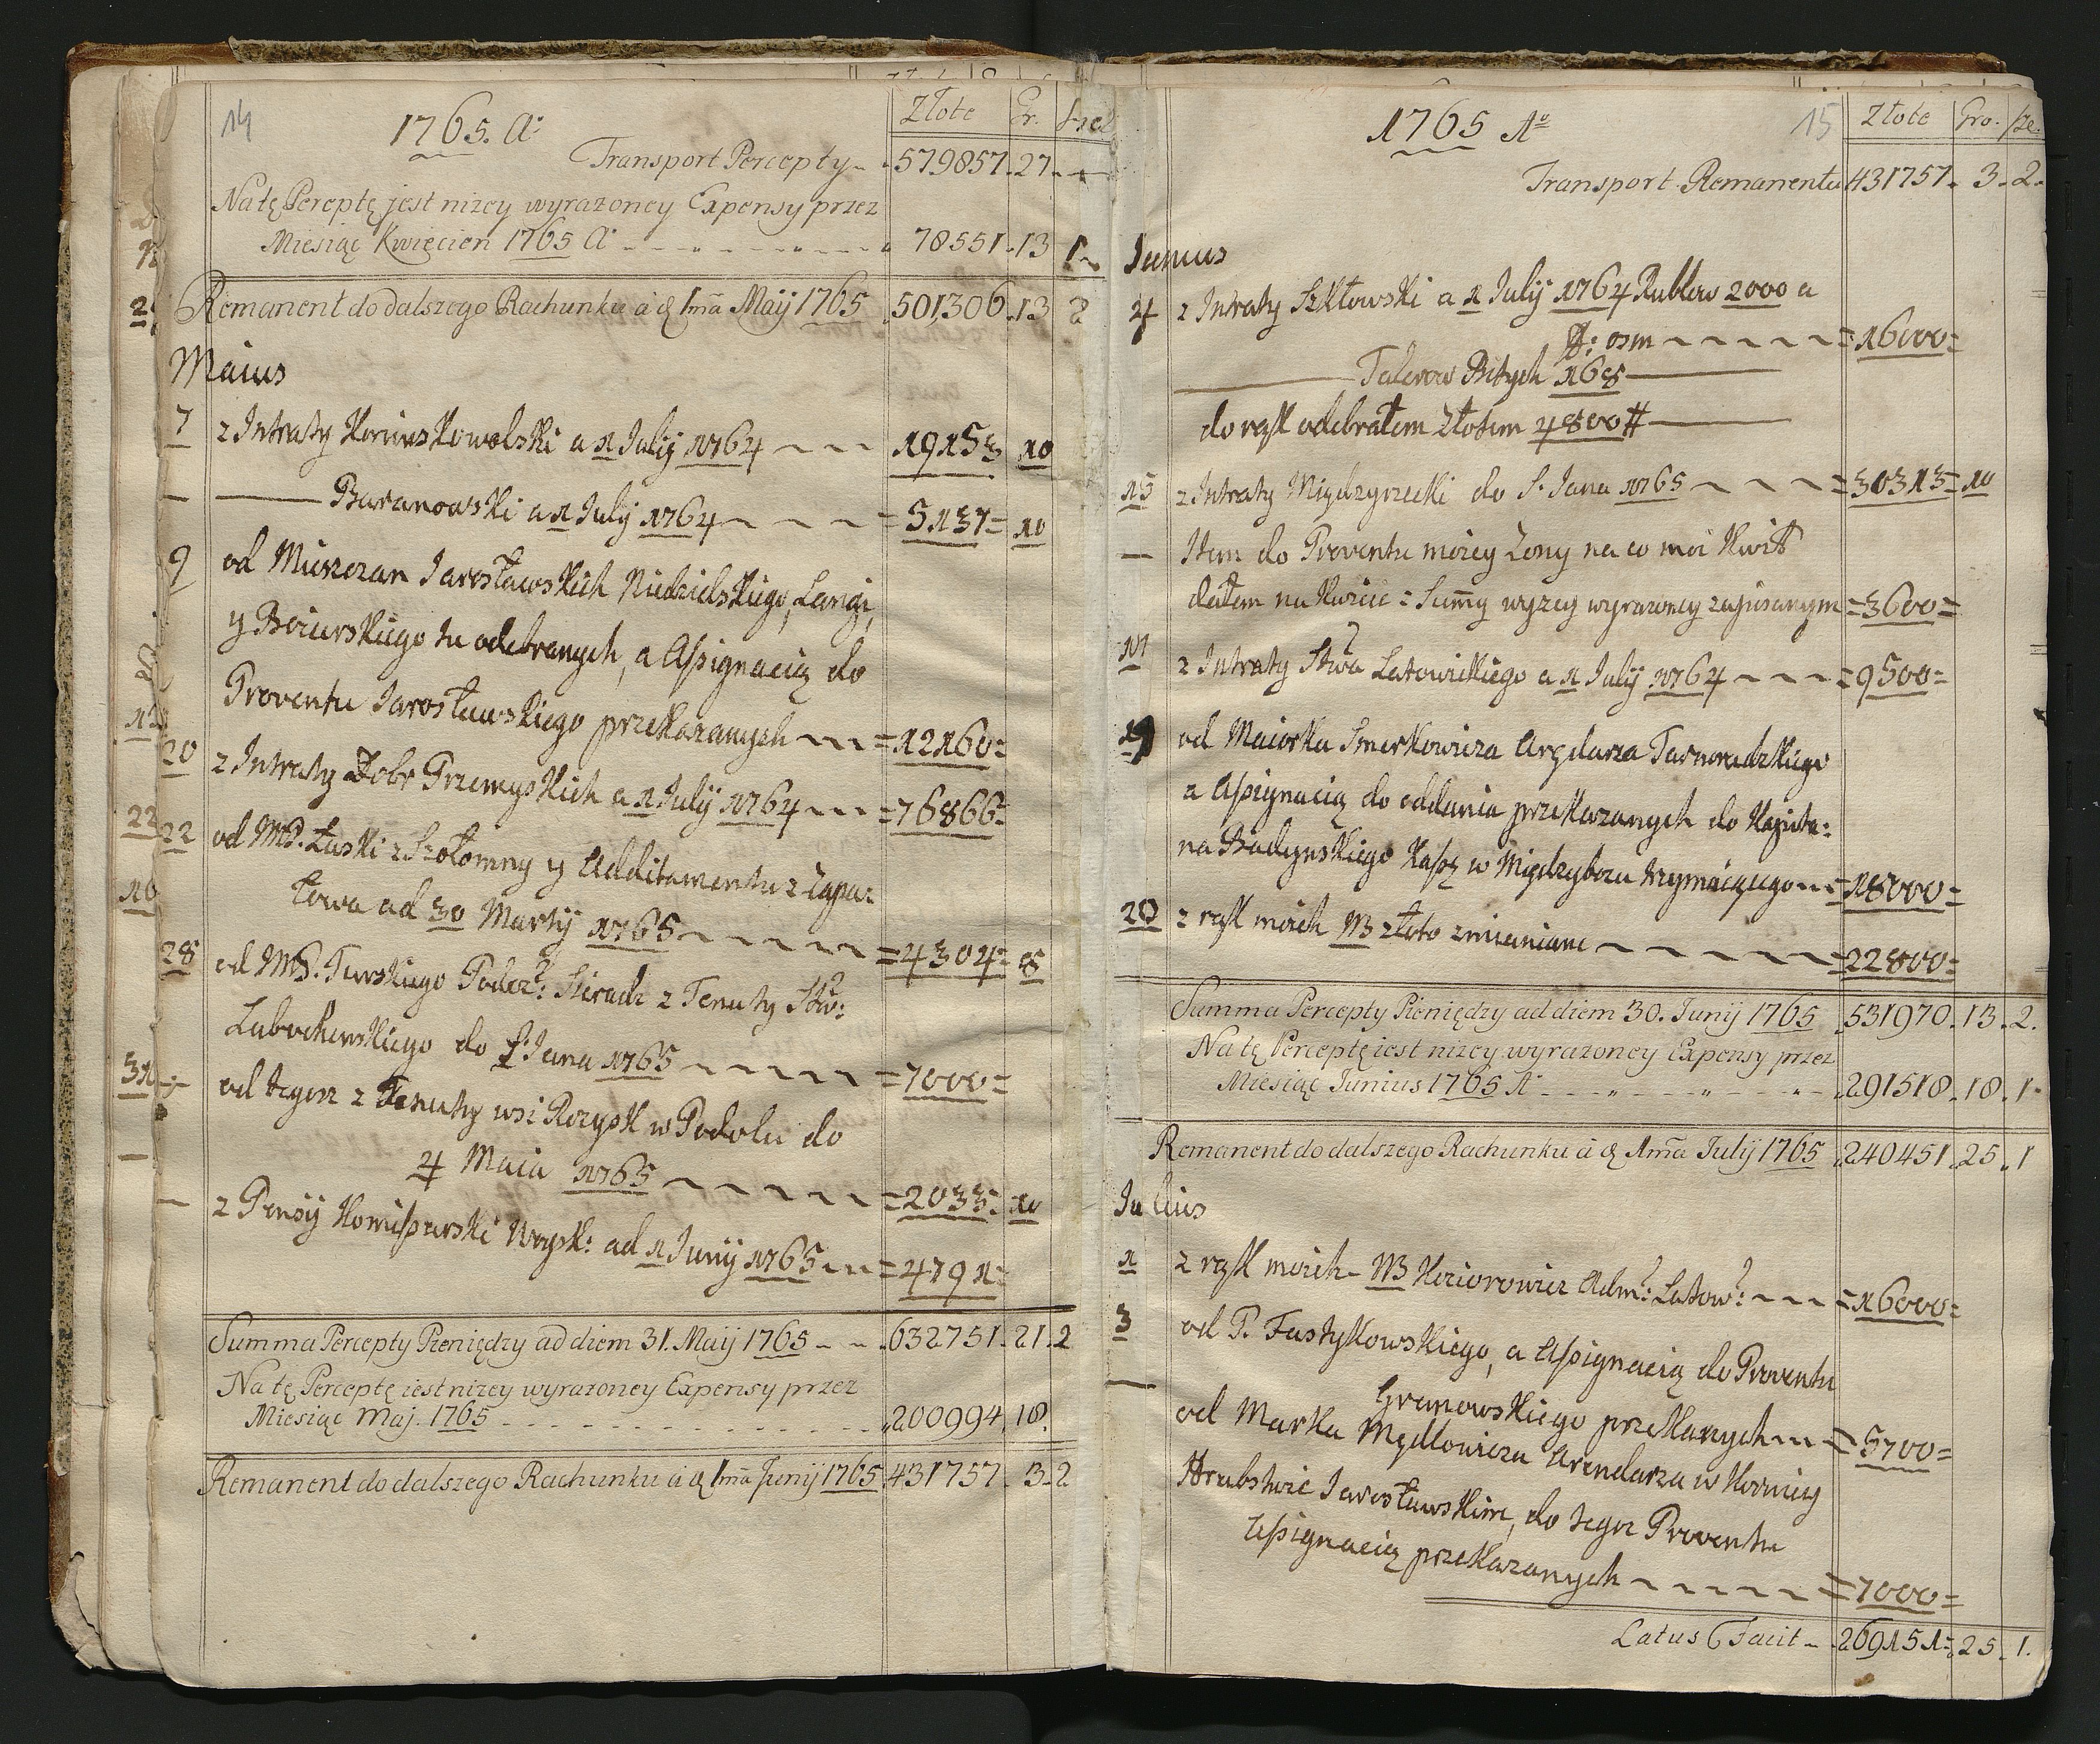 14
1765. A°
Złote Gr. Szel
Transport Percepty 579857. 27.
Na tę Perceptę jest nizey wyrazoney Expensy przez
Miesiąc Kwiecień 1765 A° 78551. 13 1
Remanent do dalszego Rachunku à d 1ma Maij 1765 501,306. 13 2
Maius
7 z Intraty Koniuskowolski a 1 Julij 1764 19153 10
— Baranowski a 1 Julij 1764 = 5137 = 10
9 od Mieszczan Jarosławskich Niedzielskiego, Langi,
y Boiurskiego tu odebranych, a Assignacią do
Proventu Jarosławskiego przekazanych = 12160 =
20 z Intraty Dobr Przemyskich a 1 Julij 1764 = 76866 =
22 od MP. Łaski z Szołomny y Additamentu z Łopa:
towa ad 30 Martij 1765 = 4304 = 8
28 od MP. Turskiego Podcz: Sieradz z Tenuty Stw:
Labochewskiego do S: Jana 1765 = 7000 =
od tegoz z Tenuty wsi Rozysk w Podolu do
4 Maia 1765 = 2033 = 10
— z Pensij Komissarski Woysk: ad 1 Junij 1765 = 4791 =
Summa Percepty Pieniędzy ad diem 31. Maij 1765 632751. 21. 2
Na tę Perceptę iest nizey wyrazoney Expensy przez
Miesiąc Maj. 1765 200994. 18.
Remanent do dalszego Rachunku à d 1ma Junij 1765 431757. 3. 2
1765 A° 15
Złote Gro. sze.
Transport Remanentu 431757. 3. 2.
Junius
4 z Intraty Szkłowski a 1 Julij 1764 Rublow 2000 a
ff: osm = 16000 =
Talerow Bitych 168
do rąk odebrałem Złotem 4800 #
15 z Intraty Międzyrzecki do S. Jana 1765 = 30313 = 10
— Item do Proventu moiey Zony na co moi Kwit
dałem na Kwicie = Summy wyzey wyrazoney zapisanym = 3600 =
17 z Intraty Stwa Latowickiego a 1 Julij 1764 = 9500 =
19 od Maiorka Smerkowicza Arędarza Tarnoradzkiego
a Assignacią do oddania przekazanych do Kapita:
na Budzynskiego Kassę w Międzyborzu trzymaiącego = 18000 =
20 z rąk moich W3 złoto zmieniane = 22800 =
Summa Percepty Pieniędzy ad diem 30. Junij 1765 531970. 13. 2.
Na tę Perceptę iest nizey wyrazoney Expensy przez
Miesiąc Junius 1765 A° 291518. 18. 1
Remanent do dalszego Rachunku à d 1ma Julij 1765 240451. 25. 1
Julius
1 z rąk moich W3 Koziorowicz Adm: Latow: = 16000 =
3 od P. Fastykowskiego, a Assignacią do Proventu
Granowskiego przekazanych = 5700 =
— od Marka Mędlowicza Arendarza w Korniey
Hrabstwie Jarosławskim, do tegoz Proventu
Assignacią przekazanych = 7000 =
Latus 6 Facit 269151 = 25. 1.